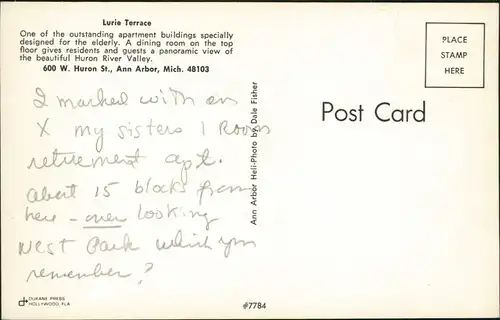 Lurie Terrace
One of the outstanding apartment buildings specially
designed for the elderly. A dining room on the top
floor gives residents and guests a panoramic view of
the beautiful Huron River Valley.
600 W. Huron St., Ann Arbor, Mich. 48103
PLACE
STAMP
HERE
Post Card
I marked with an
X my sisters 1 Room
retirement apt.
about 15 blocks from
here - over looking
West Park which you
remember?
Ann Arbor Heli-Photo by Dale Fisher
DUKANE PRESS
HOLLYWOOD, FLA
#7784